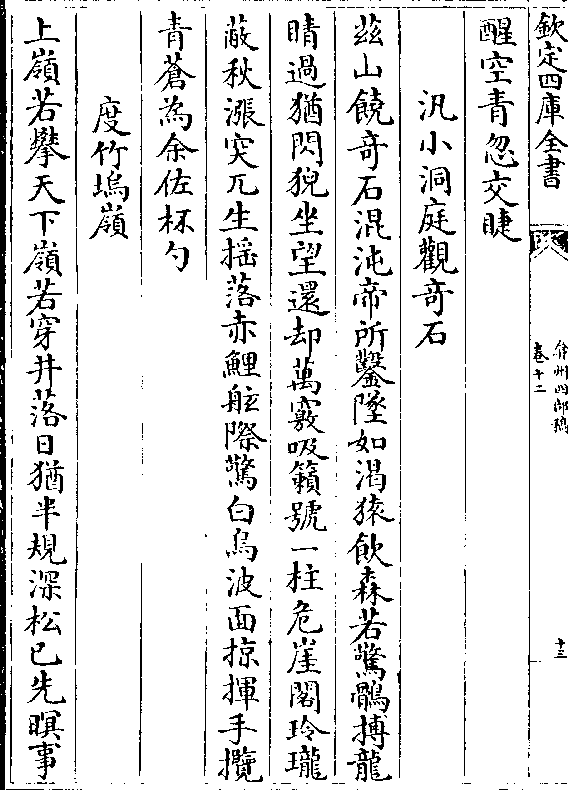 欽定四庫全書
弇州四部稿
卷十二
十三
醒空青忽交睫
汎小洞庭觀奇石
茲山饒奇石混沌帝所鑿墜如渴猿飲森若驚鶻搏龍
睛過猶閃猊坐望還却萬竅吸籟號一柱危崖閣玲瓏
蔽秋漲突兀生搖落赤鯉舷際驚白鳥波面掠揮手攬
青蒼為余佐杯勺
度竹塢嶺
上嶺若攀天下嶺若穿井落日猶半規深松已先暝事